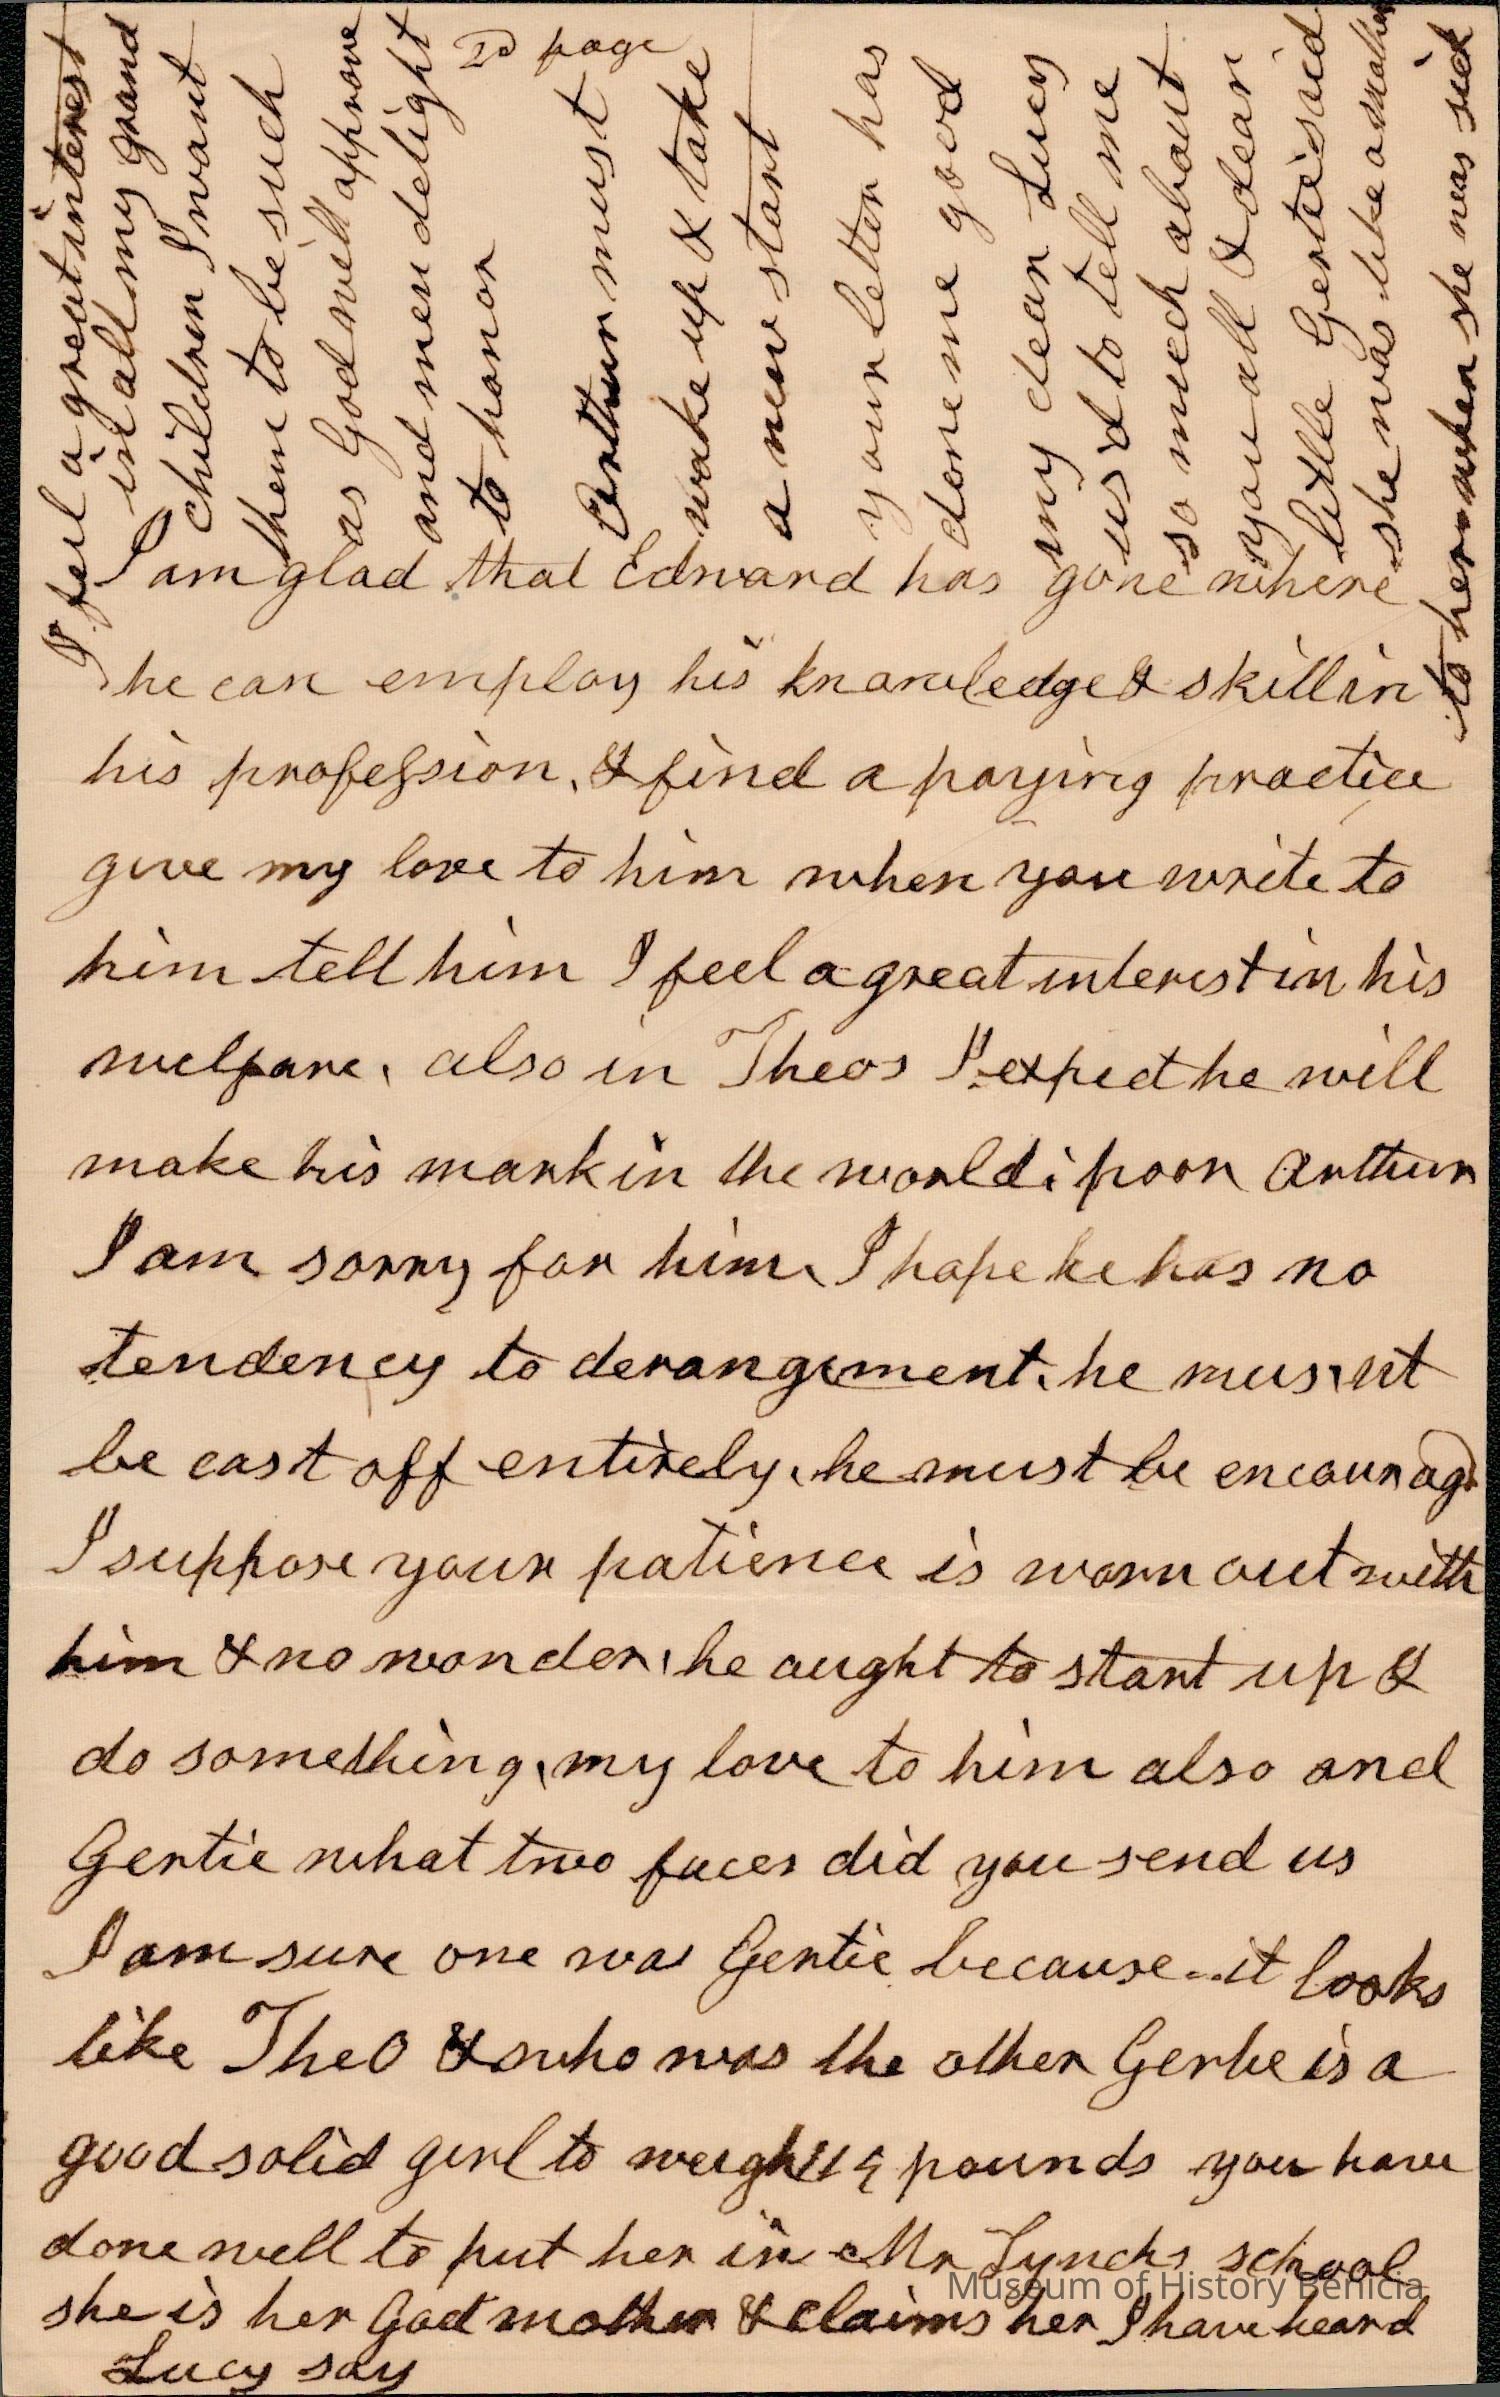 2d page
I am glad that Edward has gone where
he can employ his knowledge & skill in
his profession, & find a paying practice
give my love to him when you write to
him tell him I feel a great interest in his
welfare, also in Theos I expect he will
make his mark in the world; poor Arthur
I am sorry for him, I hope he has no
tendency to derangement, he mus,nt
be cast off entirely, he must be encourag
I suppose your patience is worn out with
him & no wonder, he aught to start up &
do something, my love to him also and
Gertie what two faces did you send us
I am sure one was Gertie because it looks
like TheO & who was the other Gertie is a
good solid girl to weigh pounds you have
done well to put her in Mr Lynchs school
she is her God mother & claims her I have heard
Lucy say
I feel a great interest
in all my grand
children I want
them to be such
as God will approve
and men delight
to honor
Arthur must
wake up & take
a new start
your letter has
done me good
my dear Lucy
us'd to tell me
so much about
you all & dear
little Gertie said
she was like a mother
to her when she was sick
Museum of History Benicia